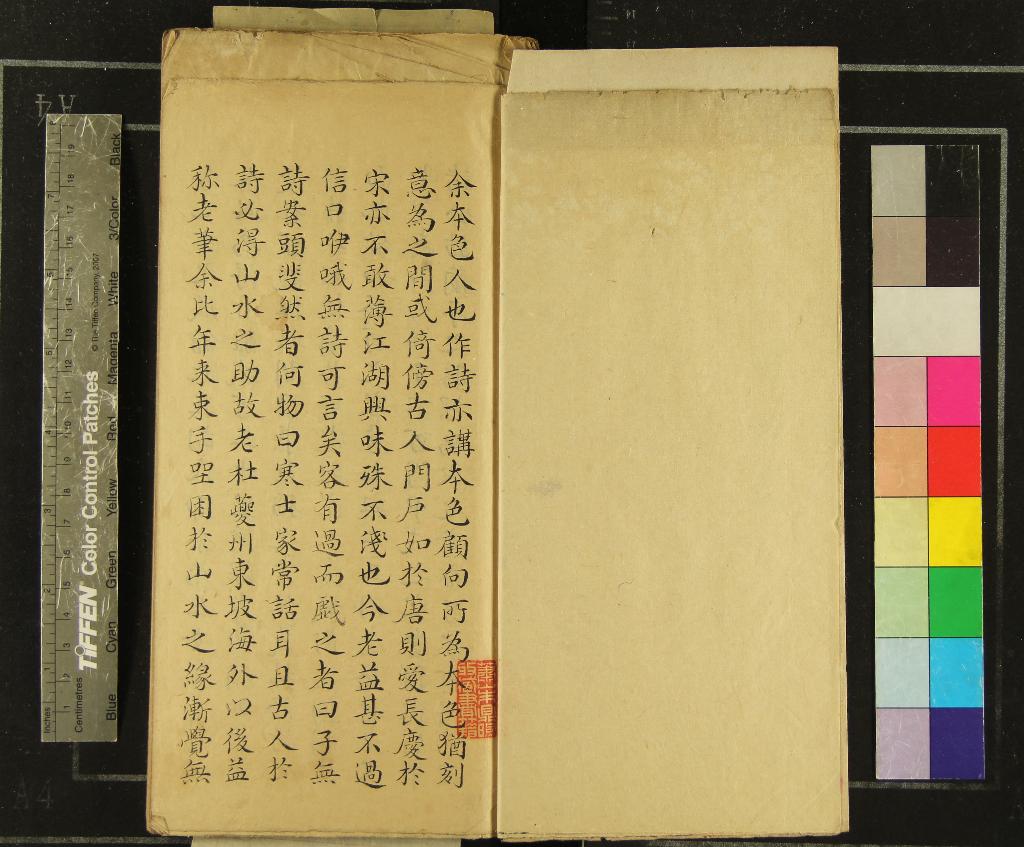 余本色人也作詩亦講本色顧向所為本色猶刻
意為之間或倚傍古人門戶如於唐則愛長慶於
宋亦不敢薄江湖興味殊不淺也今老益甚不過
信口咿哦無詩可言矣客有過而戲之者曰子無
詩案頭斐然者何物曰寒士家常話耳且古人於
詩必得山水之助故老杜夔州東坡海外以後益
称老筆余比年来束手坐困於山水之緣漸覺無
Inches
Centimetres
TIFFEN Color Control Patches
© The Tiffen Company, 2007
Blue Cyan Green Yellow Red Magenta White 3/Color Black
A4
A4